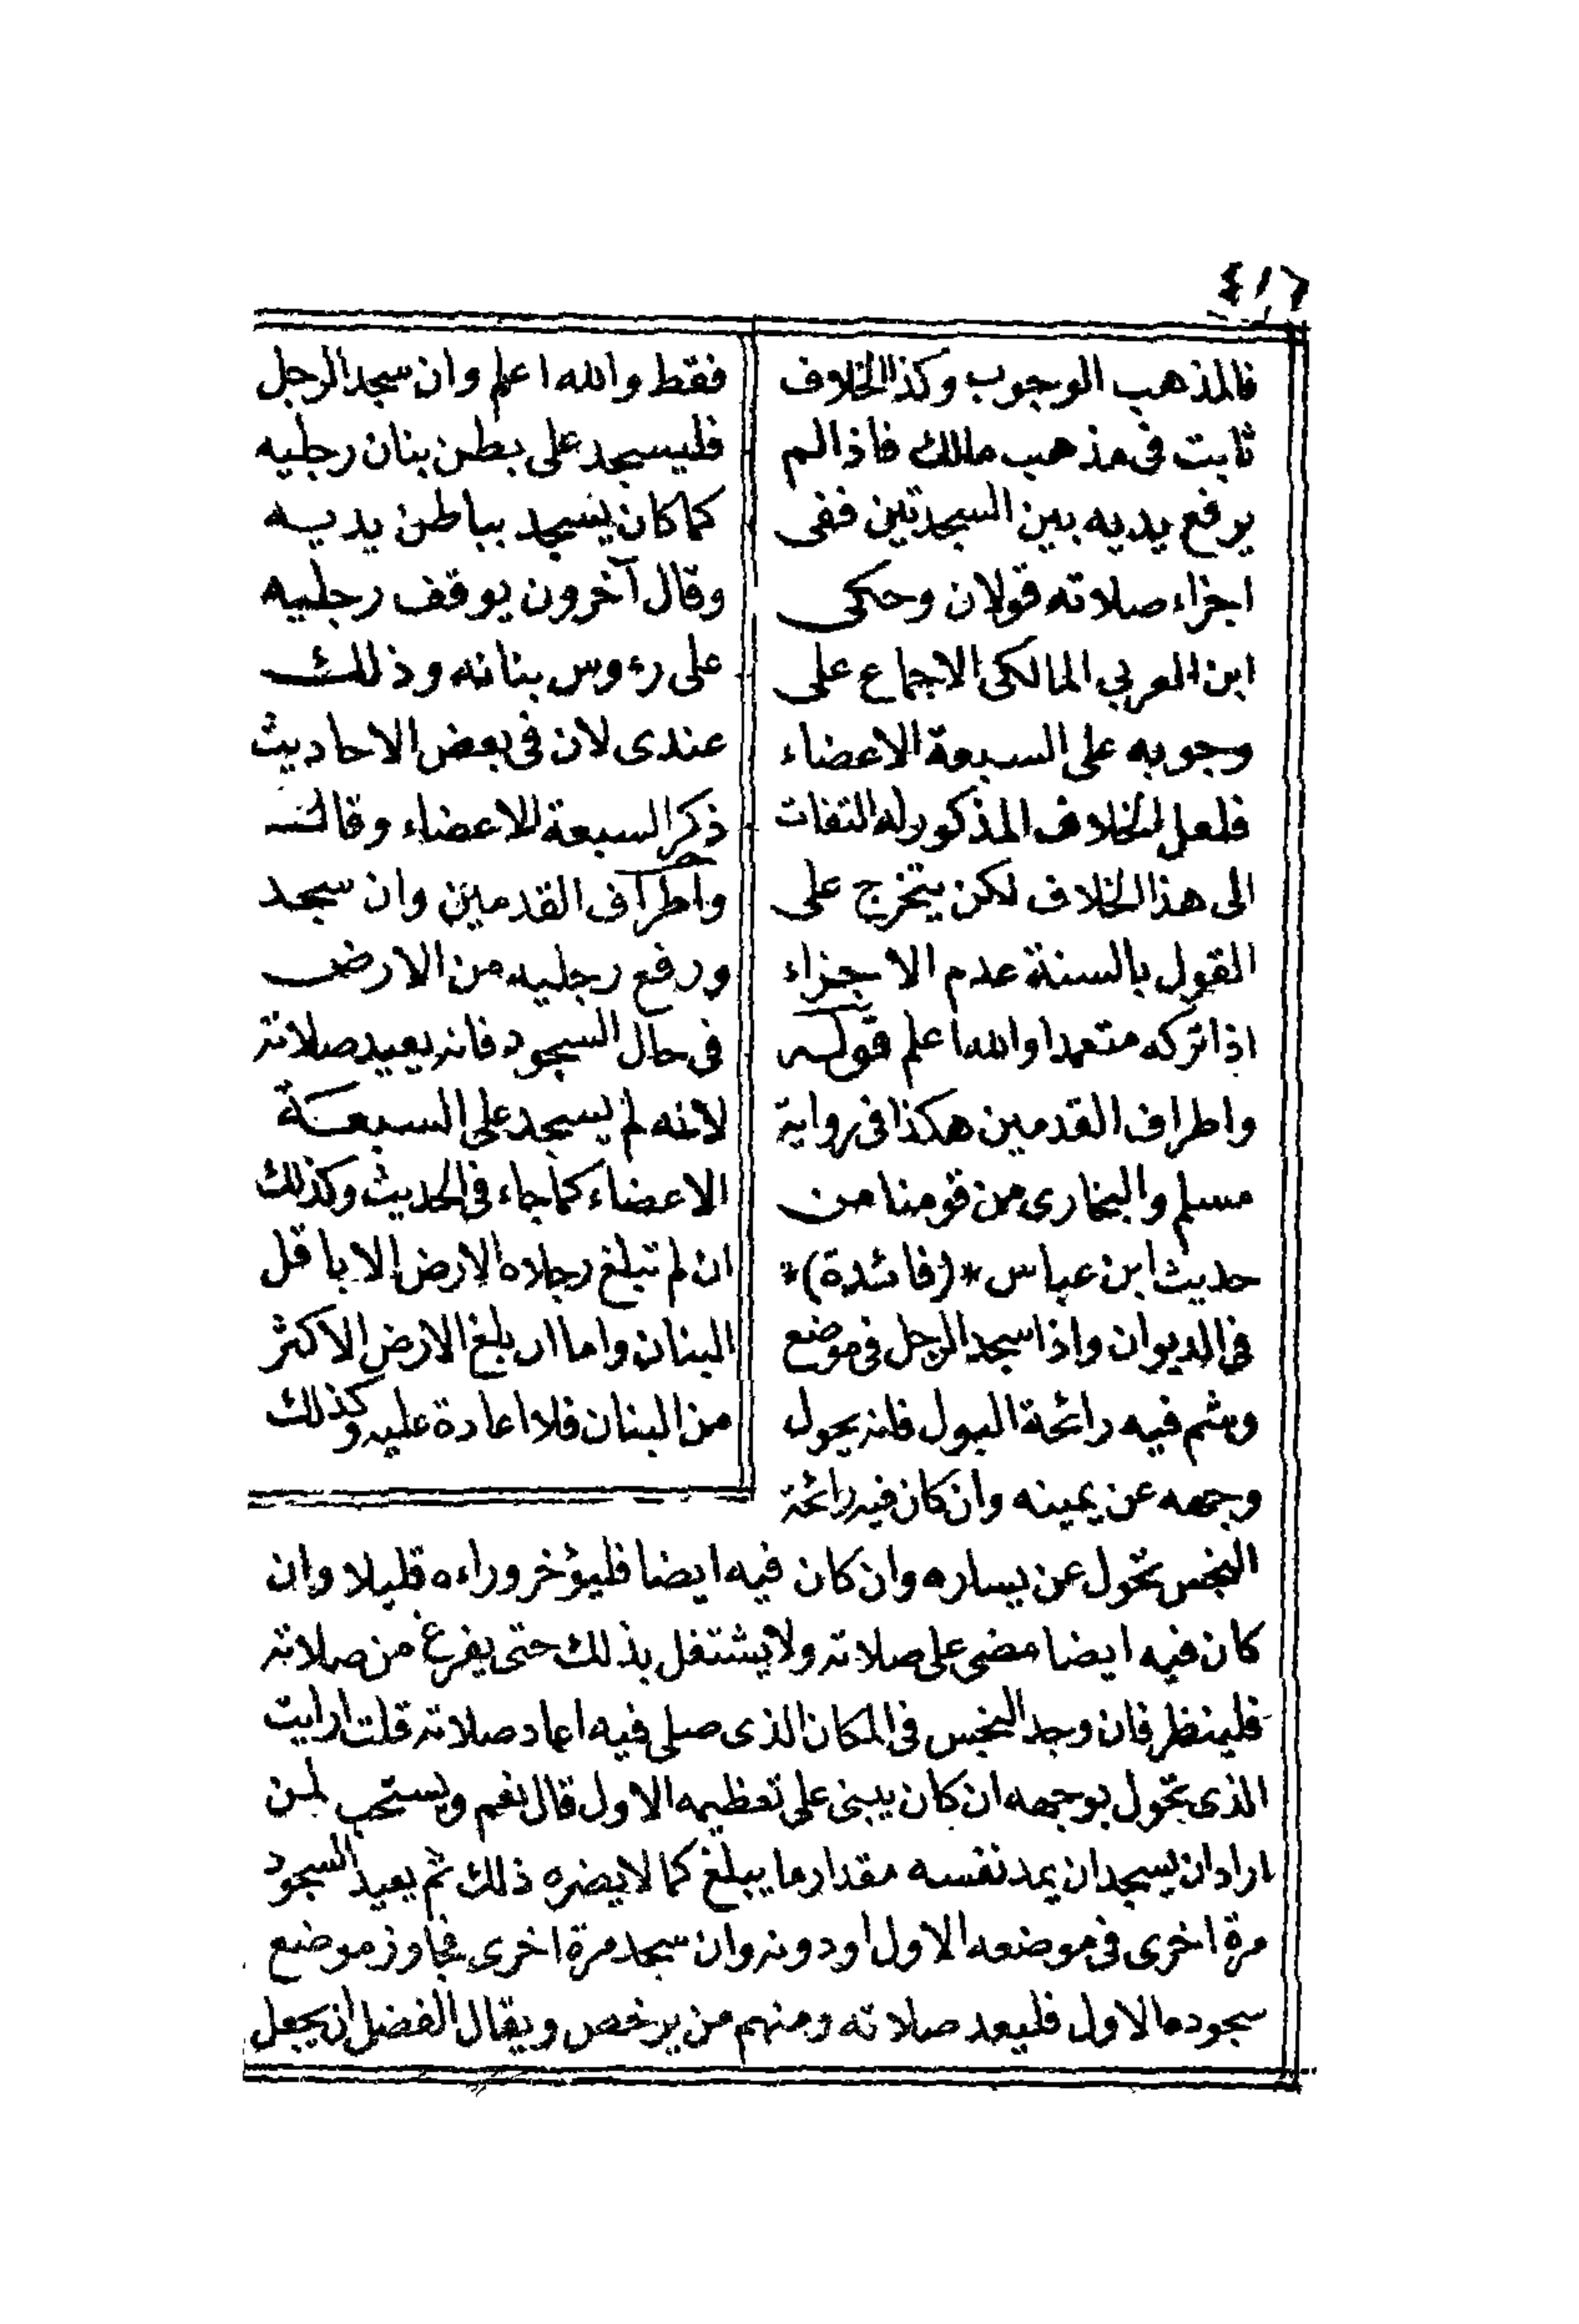 ٤١٦
فالمذهب الوجوب وكذا الخلاف
ثابت فى مذهب مالك فاذا لم
يرفع يديه بين السجدتين ففى
اجزاء صلاته قولان وحكى
ابن العربي المالكى الاجماع على
وجوبه على السبعة الاعضاء
فلعل الخلاف المذكور له التفات
الى هذا الخلاف لكن يتخرج على
القول بالسنة عدم الاجزاء
اذا تركه متعمدا والله اعلم قوله
واطراف القدمين هكذا فى رواية
مسلم والبخارى من قومنا من
حديث ابن عباس *(فائدة)*
فى الديوان واذا سجد الرجل فى موضع
وشم فيه رائحة البول فانه يحول
وجهه عن يمينه وان كان فيه رائحة
فقط والله اعلم وان سجد الرجل
فليسجد على بطن بنان رجليه
كما كان يسجد بباطن يديه
وقال آخرون يوقف رجليه
على رءوس بنانه وذلك
عندى لان فى بعض الاحاديث
ذكر السبعة للاعضاء وقال
واطراف القدمين وان سجد
ورفع رجليه من الارض
فى حال السجود فانه يعيد صلاته
لانه لم يسجد على السبعة
الاعضاء كما جاء فى الحديث وكذلك
ان لم تبلغ رجلاه الارض الا باقل
البنان واما ان بلغ الارض الاكثر
من البنان فلا اعادة عليه وكذلك
النجس تحول عن يساره وان كان فيه ايضا فليؤخر وراءه قليلا وان
كان فيه ايضا مضى على صلاته ولا يشتغل بذلك حتى يفرغ من صلاته
فلينظر فان وجد النجس فى المكان الذى صلى فيه اعاد صلاته قلت ارايت
الذى تحول بوجهه ان كان يبنى على تعظيمه الاول قال نعم ويستحب لمن
اراد ان يسجد ان يمد نفسه مقدار ما يبلغ كما لا يضره ذلك ثم يعيد السجود
مرة اخرى فى موضعه الاول او دونه وان سجد مرة اخرى فجاوز موضع
سجوده الاول فليعد صلاته ومنهم من يرخص ويقال الفضل ان يجعل